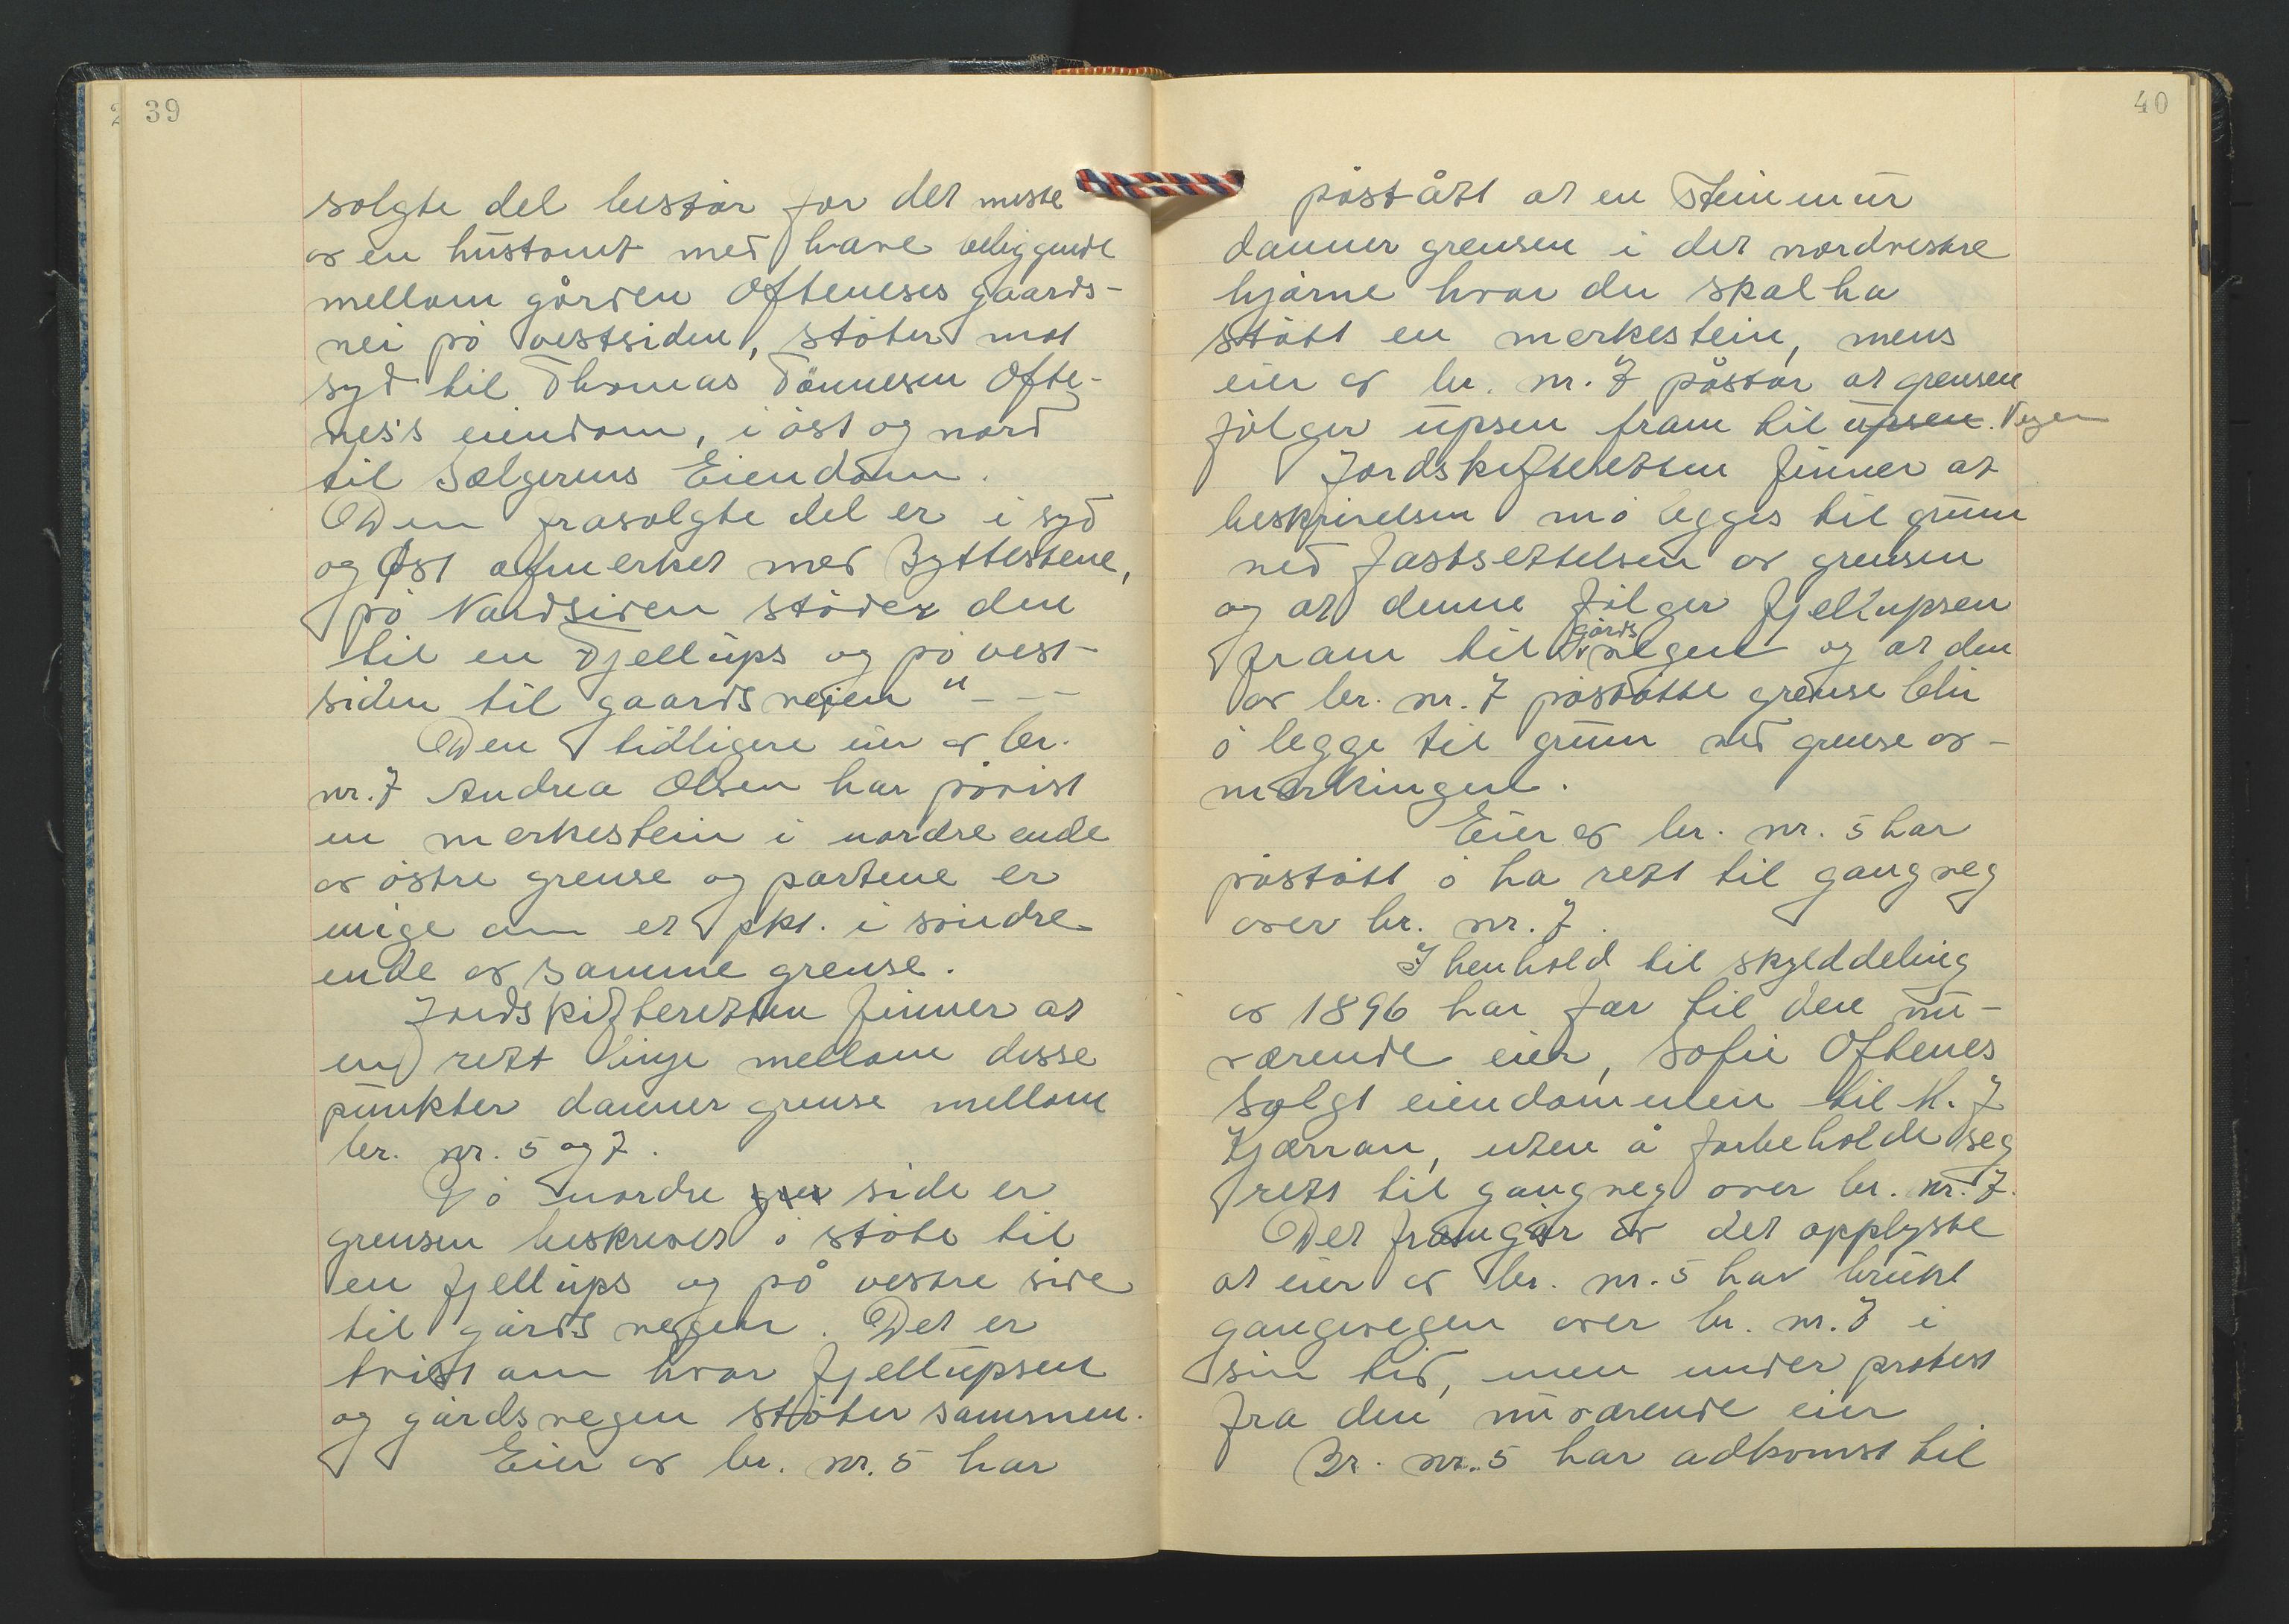 39
solgte del består for det meste
av en hustomt med have beliggende
mellom gården Ofteneses gaards-
vei på vestsiden, støter mot
syd til Thomas Tønnesen Ofte-
nes's eiendom, i øst og nord
til Sælgerens Eiendom.
Den frasolgte del er i syd
og Øst afmerket med Byttestene,
på Nordsiden støder den
til en Fjellups og på vest-
siden til gaardsveien" - - -
Den tidligere eier av br.
nr. 7 Andrea Olsen har påvist
en merkestein i nordre ende
av østre grense og partene er
enige om et pkt. i søndre
ende av samme grense.
Jordskifteretten finner at
en rett linje mellom disse
punkter danner grense mellom
br. nr. 5 og 7.
På nordre gren side er
grensen beskrevet å støte til
en fjellups og på vestre side
til gårdsvegen. Det er
tvist om hvor fjellupsen
og gårdsvegen støter sammen.
Eier av br. nr. 5 har
40
påstått at en steinmur
danner grensen i det nordvestre
hjørne hvor der skal ha
stått en merkestein, mens
eier av br. nr. 7 påstår at grensen
følger upsen fram til upsen. Vegen
Jordskifteretten finner at
beskrivelsen må legges til grunn
ved fastsettelsen av grensen
og at denne følger fjellupsen
fram til gårdsvegen og at den
av br. nr. 7 påståtte grense blir
å legge til grunn ved grense av-
merkingen.
Eier av br. nr. 5 har
påstått å ha rett til gangveg
over br. nr. 7.
I henhold til skylddeling
av 1896 har far til den nu-
værende eier, Sofie Oftenes
solgt eiendommen til M. J
Kjærran, uten å forbeholde seg
rett til gangveg over br. nr. 7.
Det framgår av det opplyste
at eier av br. nr. 5 har brukt
gangvegen over br. nr. 7 i
sin tid, men under protest
fra den nuværende eier
Br. nr. 5 har adkomst til